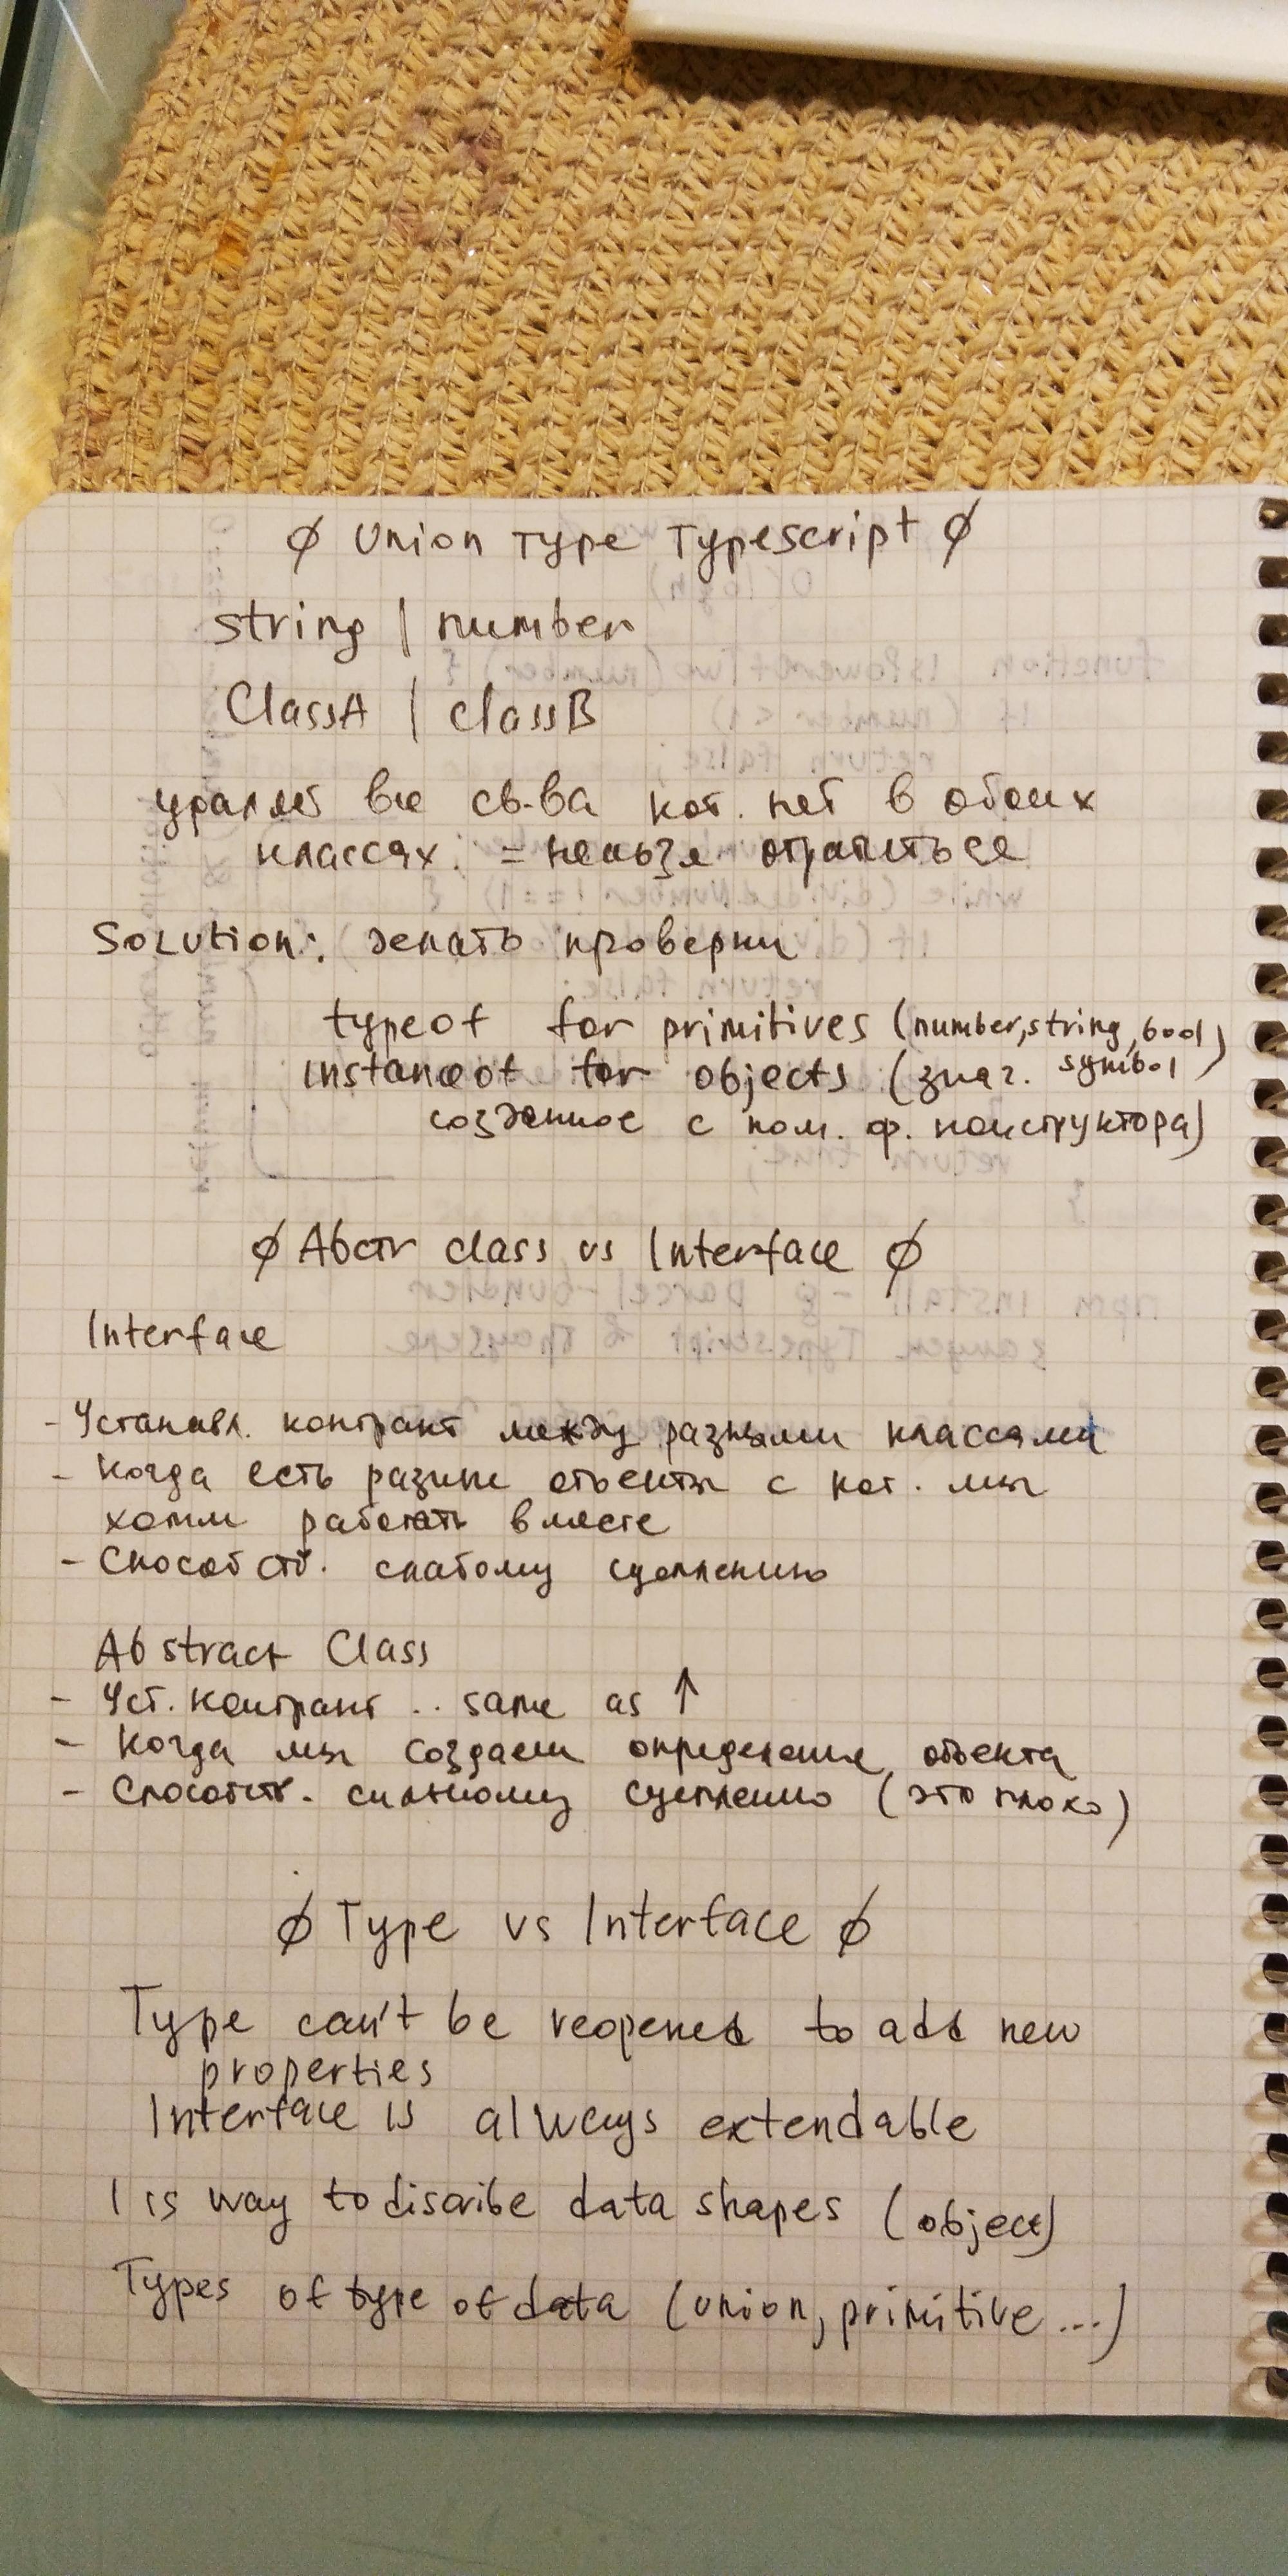 ∅ Union Type Typescript ∅
string | number
ClassA | classB
удаляет все св-ва кот. нет в обоих
классах. = нельзя обратиться
Solution: делать проверки
typeof for primitives (number, string, bool
symbol)
instanceof for objects (знач.
созданное с пом. ф. конструктора)
∅ Абстr class vs Interface ∅
Interface
- Устанавл. контракт между разными классами
- Когда есть разные объекты с кот. мы
хотим работать вместе
- Способств. слабому сцеплению
Abstract Class
- Уст. контракт .. same as ↑
- Когда мы создаем определение объекта
- Способств. сильному сцеплению (это плохо)
∅ Type vs Interface ∅
Type can't be reopened to add new
properties
Interface is always extendable
I is way to discribe data shapes (object)
Types of type of data (union, primitive ...)